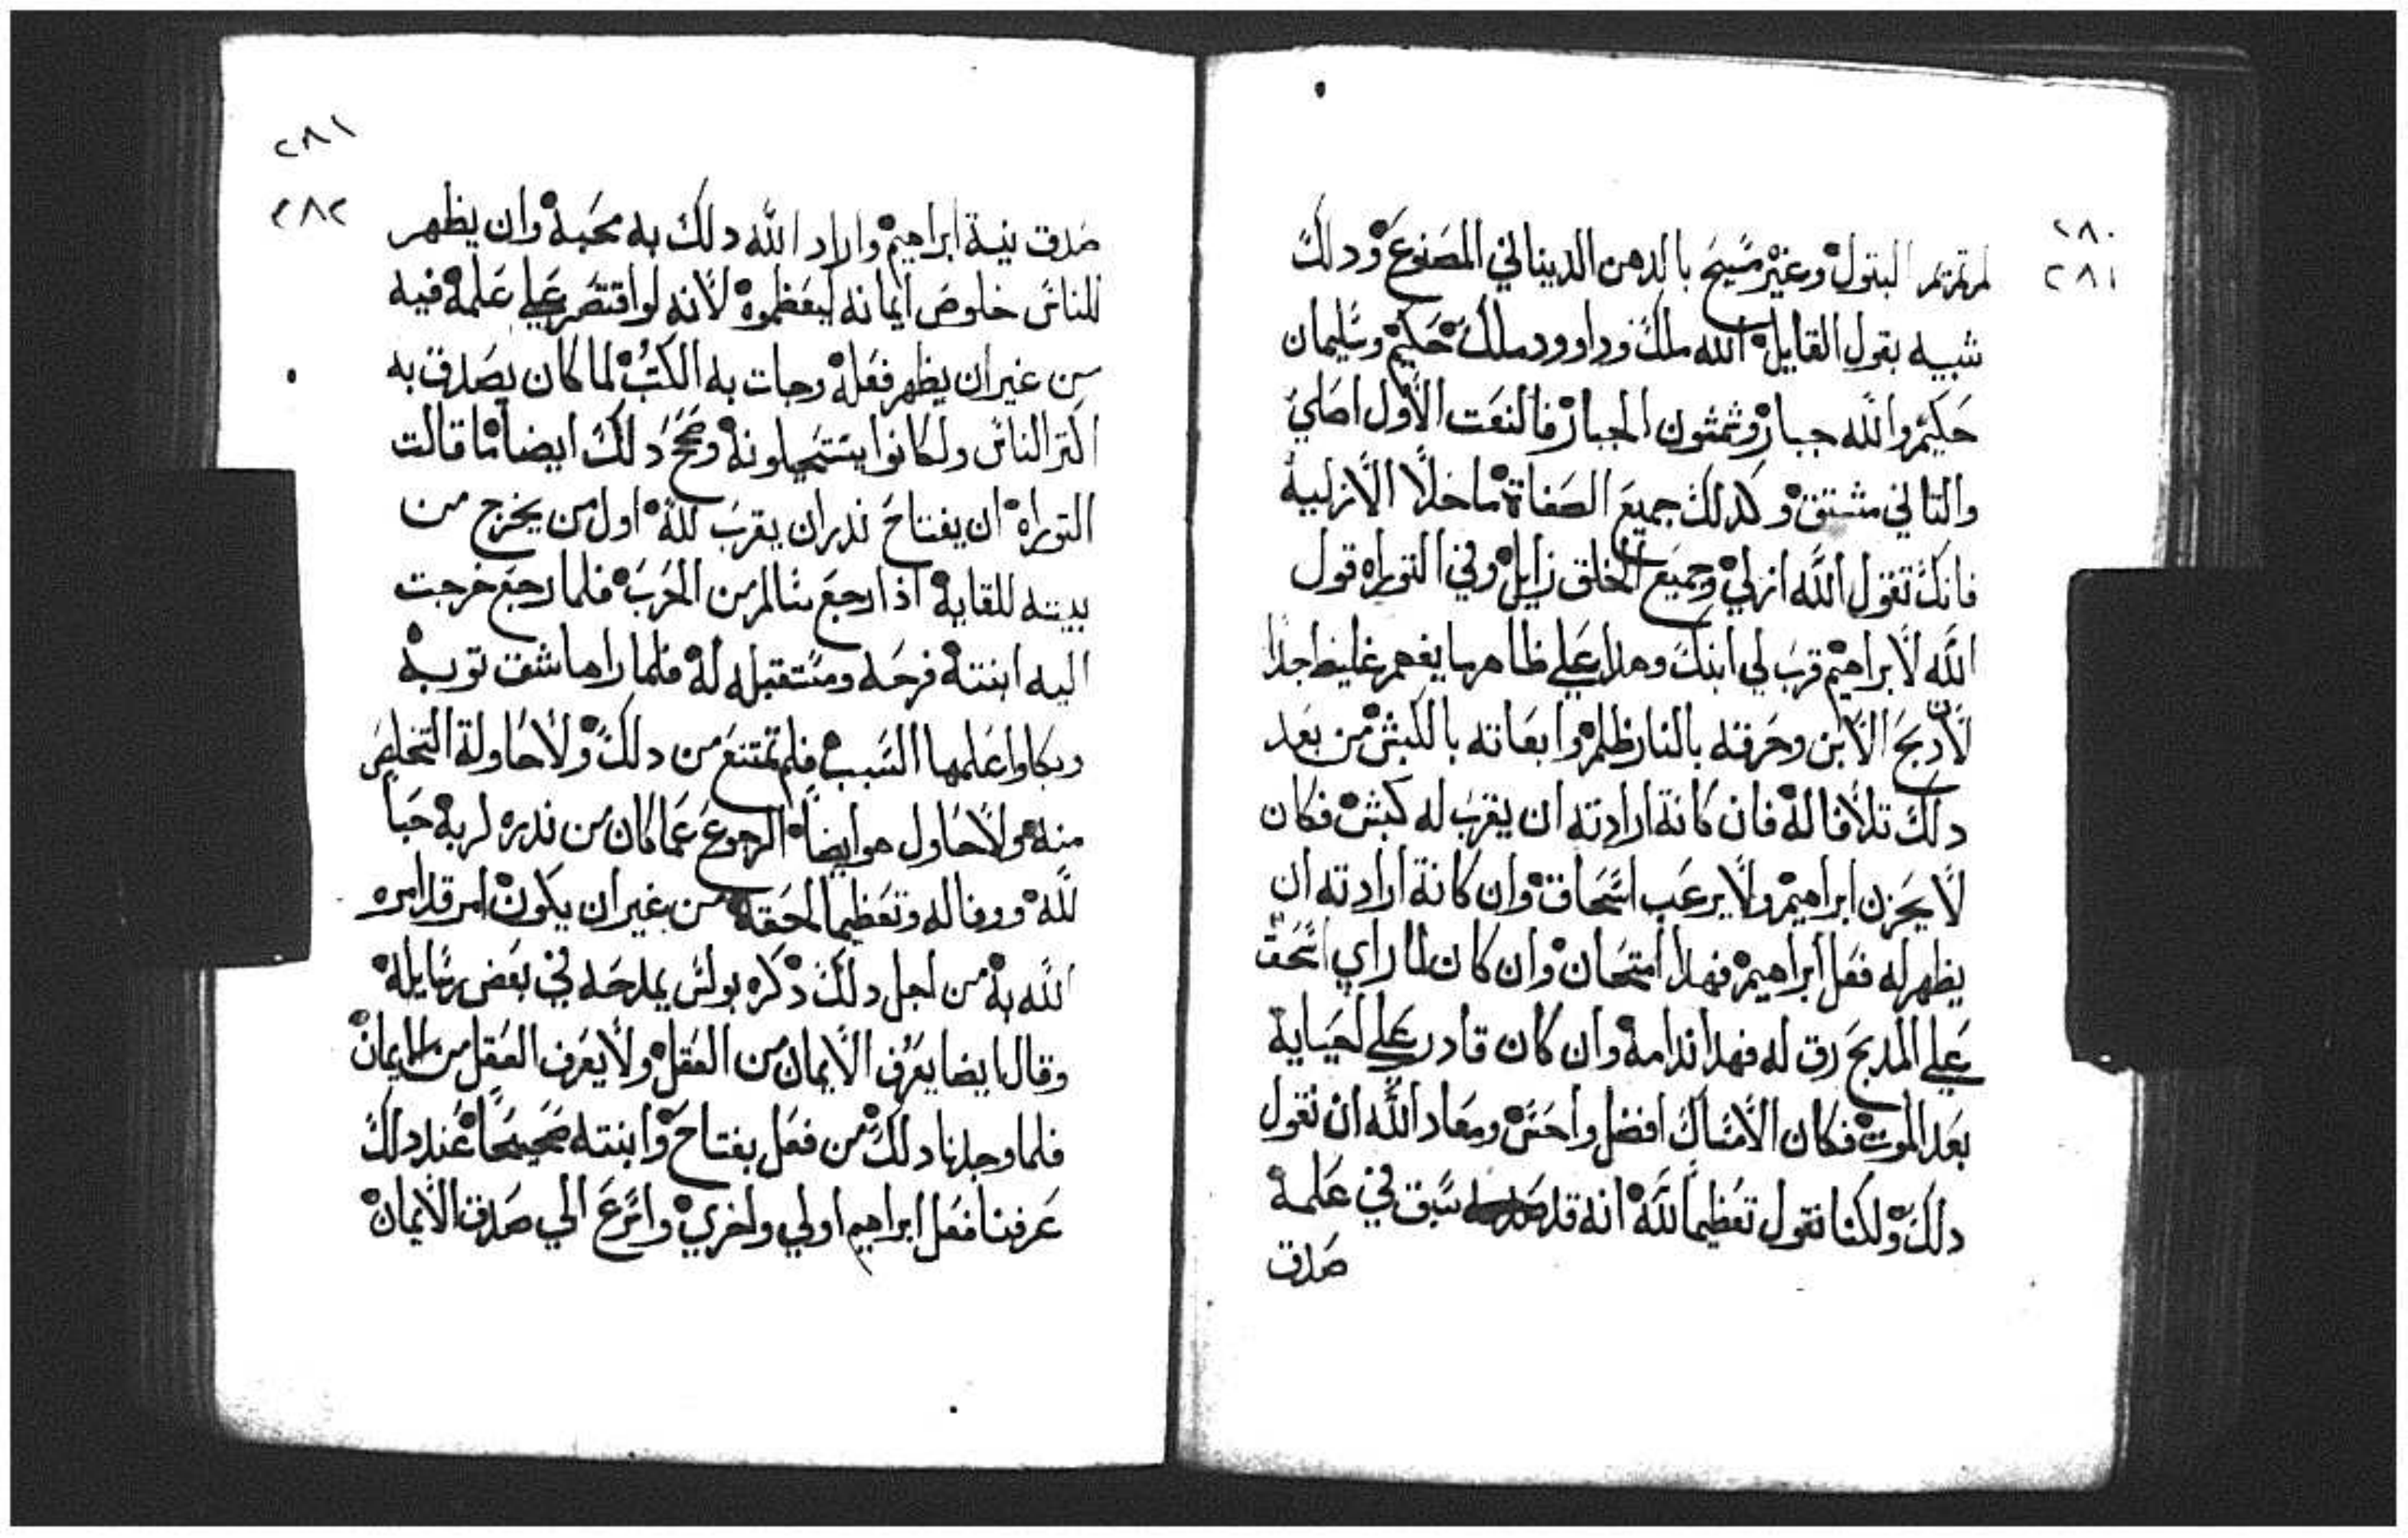 ٢٨٠
٢٨١
لمرتمرتمر البتول وغير مسيح بالدهن الديناني المصنوع ودلك
شبيه بقول القايل الله ملك وداوود ملك حكيم وسليمان
حكيم والله جبار وشمشون الجبار فالنعت الاول اصلي
والتاني مشتق وكدلك جميع الصفاة ماخلا الازلية
فانك تقول الله ازلي وجميع الخلق زايل وفي التوراه قول
الله لابراهيم قرب لي ابنك وهدا علي ظاهر ما يفهم غليظ جدا
لان دبح الابن وحرقته بالنار ظلم وابعاته بالكبش من بعد
دلك تلافا له فان كانة ارادته ان يقرب له كبش فكان
لا يحزن ابراهيم ولا يرعب اسحاق وان كانة ارادته ان
يظهر له فعل ابراهيم فهدا امتحان وان كان لما راي اسحق
علي المدبح رق له فهدا ندامة وان كان قادر علي احياية
بعد الموت فكان الامساك افضل واحسن ومعاد الله ان نقول
دلك ولكنا نقول تعظيما لله انه قد سبق في علمه
صدق
٢٨١
٢٨٢
صدق نية ابراهيم واراد الله دلك به محبة وان يظهر
للناس خلوص ايمانه ليعظموه لانه لو اقتصر علي علمه فيه
من غير ان يظهر فعله وجات به الكتب لما كان يصدق به
اكتر الناس ولكانوا يستجهلونه وصح دلك ايضا ما قالت
التوراه ان يفتاح ندر ان يقرب لله اول من يخرج من
بيته للقايه ادا رجع سالم من الحرب فلما رجع خرجت
اليه ابنته فرحه ومستقبله له فلما راها شق توبه
وبكا واعلمها السبب فلم تمتنع من دلك ولا حاولة التخلص
منه ولا حاول هو ايضا الرجوع عما كان من ندره لربه حبا
لله ووفا له وتعظيما لحقه من غير ان يكون امر قد امره
الله به من اجل دلك دكره بولس يمدحه في بعض رسايله
وقال ايضا يعرف الايمان من العقل ولا يعرف العقل من الايمان
فلما وجدنا دلك من فعل يفتاح وابنته صحيحا عند دلك
عرفنا فعل ابراهيم اولي واحري واسرع الي صدق الايمان